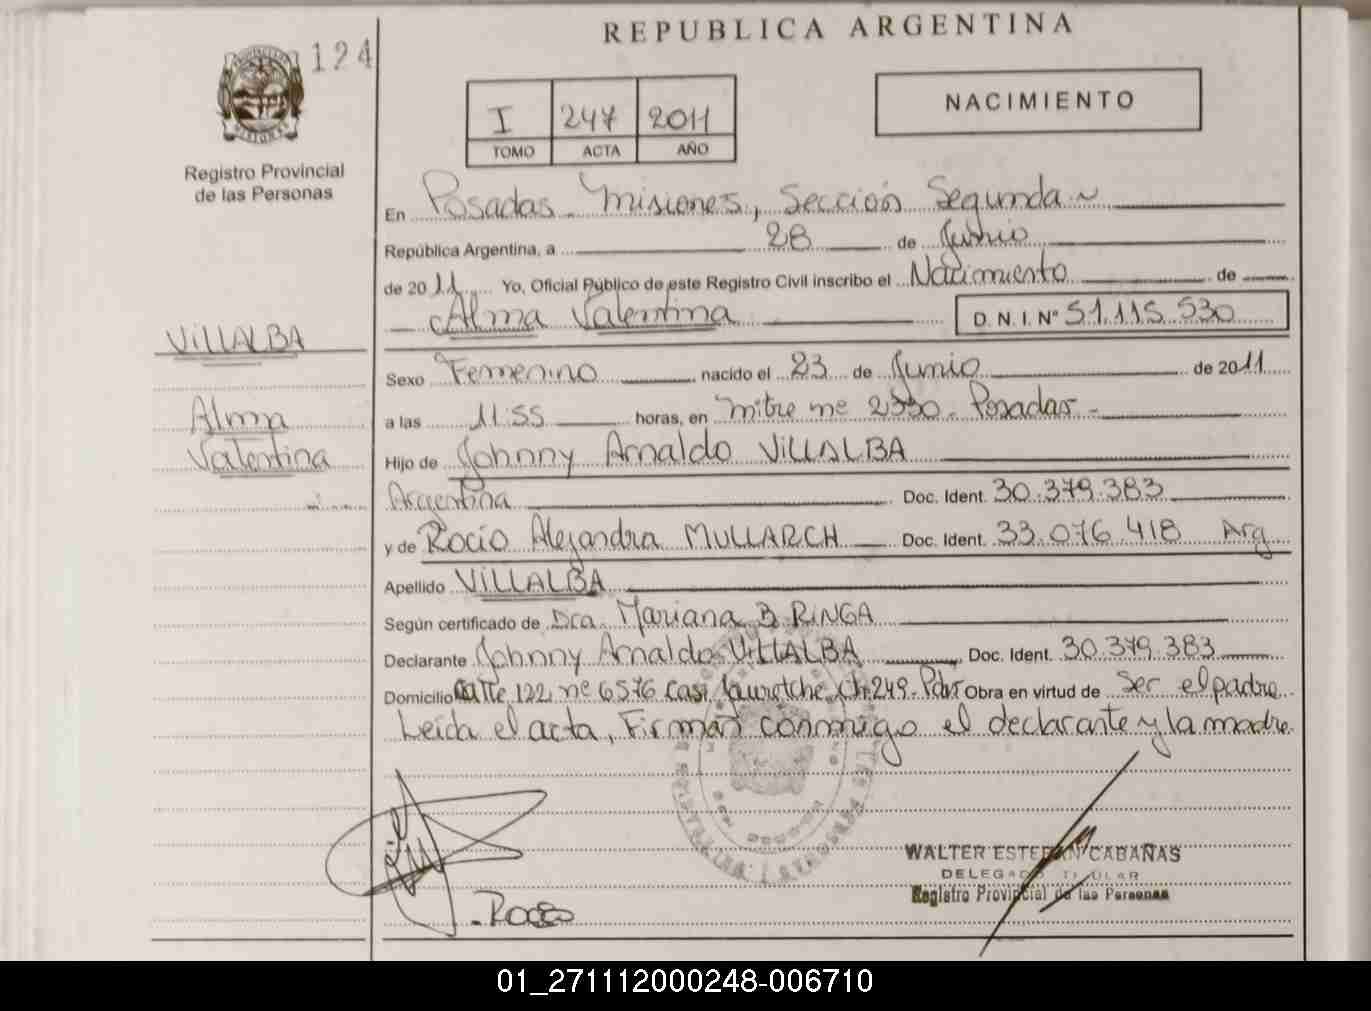 REPUBLICA ARGENTINA
124
I 247 2011
TOMO ACTA AÑO
NACIMIENTO
Registro Provincial
de las Personas
En Posadas Misiones, Sección Segunda
República Argentina, a 28 de Junio
de 2011 Yo, Oficial Público de este Registro Civil inscribo el Nacimiento de
Alma Valentina D. N. I. Nº 51.115.530
VILLALBA
Alma
Valentina
Sexo Femenino nacido el 23 de Junio de 2011
a las 11:55 horas, en Mitre nº Posadas
Hijo de Johnny Arnaldo VILLALBA
Argentina Doc. Ident. 30.379.383
y de Rocio Alejandra MULLARCH Doc. Ident. 33.076.418 Arg
Apellido VILLALBA
Según certificado de Dra. Mariana B RINGA
Declarante Johnny Arnaldo VILLALBA Doc. Ident. 30.379.383
Domicilio Calle 122 nº 6576 casi Jauretche Ch. 249. Pdas Obra en virtud de Ser el padre
Leída el acta, Firman conmigo el declarante y la madre
Rocio
WALTER ESTEBAN CABAÑAS
DELEGADO TITULAR
Registro Provincial de las Personas
01_271112000248-006710